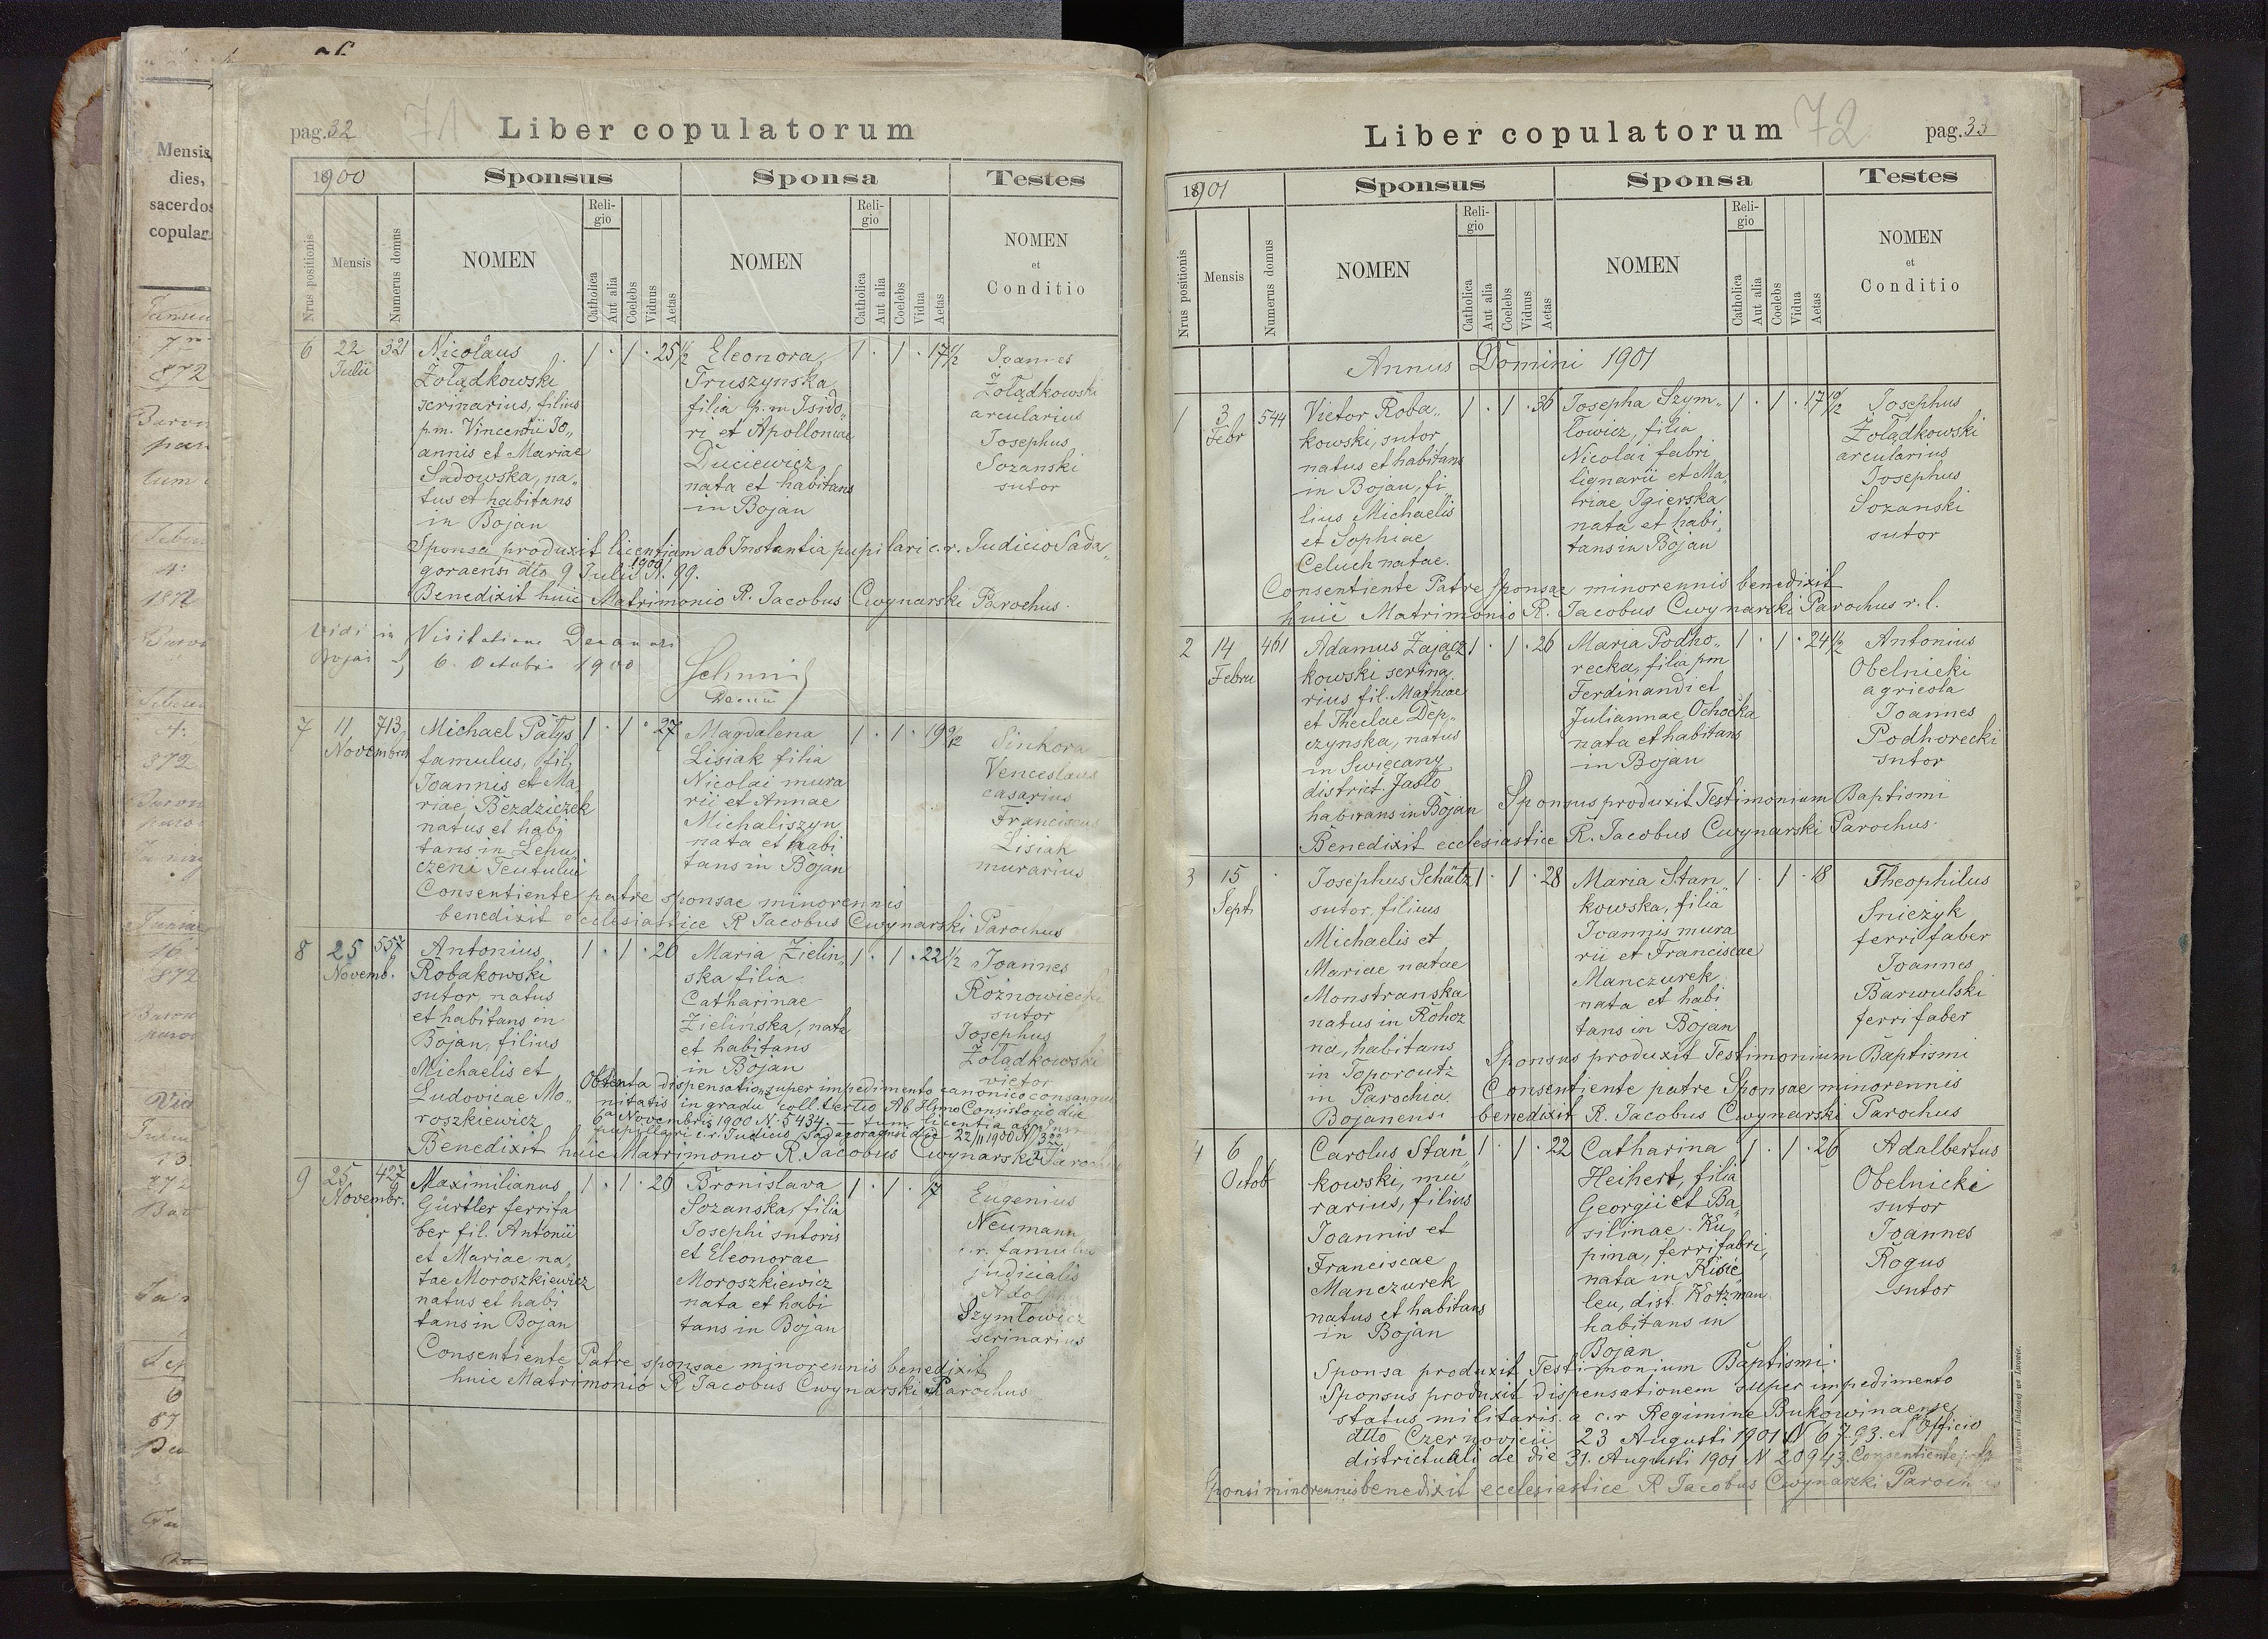 Mensis,
dies,
sacerdos
copulan
pag. 32
71
Liber copulatorum
1900
Sponsus
Sponsa
Testes
Nrus positionis
Mensis
Numerus domus
NOMEN
Reli-
gio
Catholica
Aut alia
Coelebs
Viduus
Aetas
NOMEN
Reli-
gio
Catholica
Aut alia
Coelebs
Vidua
Aetas
NOMEN
et
Conditio
6
22
Julii
321
Nicolaus
Żolądkowski
scrinarius, filius
p.m. Vincentii Jo„
annis et Mariae
Sadowska, na„
tus et habitans
in Bojan
1 · 1 · 25 1/2
Eleonora
Truszynska
filia p.m Isido„
ri et Apolloniae
Duciewicz
nata et habitans
in Bojan
1 · 1 · 17
Joannes
Żolądkowski
arcularius
Josephus
Sozanski
sutor
Sponsa produxit licentiam ab Instantia pupilari c.r. Judicio Sada„
goraensi dto 9 Julii 1900 N. 99.
Benedixit huic Matrimonio R. Jacobus Cwynarski Parochus.
Vidi in Visitatione Decanali
6. Octobri 1900
7
11
Novembris
713
Michael Patys
famulus, fil.
Joannis et Ma
riae Bezdziczek
natus et habi
tans in Lehu
czeni Teutului
1 · 1 · 27
Magdalena
Lisiak filia
Nicolai mura
rii et Annae
Michaliszyn
nata et habi
tans in Bojan
1 · 1 · 19 9/12
Sinkora
Venceslaus
casarius
Franciscus
Lisiak
murarius
Consentiente patre sponsae minorennis
benedixit ecclesiastice R Jacobus Cwynarski Parochus
8
25
Novemb.
557
Antonius
Robakowski
sutor, natus
et habitans in
Bojan, filius
Michaelis et
Ludovicae Mo„
roszkiewicz
1 · 1 · 26
Maria Zielin„
ska filia
Catharinae
Zielińska, nata
et habitans
in Bojan
1 · 1 · 22 1/2
Joannes
Rożnowiecki
sutor
Josephus
Żolądkowski
vietor
Obtenta dispensatione super impedimento canonico consangui
nitatis in gradu coll. tertio Ab Hsmo Consistorio die
6a Novembris 1900 N. 5434.
pupillari c.r. Judicii Sadagoraensi die 22/11 1900
Benedixit huic Matrimonio R. Jacobus Cwynarski Parochus
9
25
Novembr.
427
Maximilianus
Gürtler ferrifa
ber fil. Antonii
et Mariae na„
tae Moroszkiewicz
natus et habi
tans in Bojan
1 · 1 · 26
Bronislava
Sozanska, filia
Josephi sutoris
et Eleonorae
Moroszkiewicz
nata et habi
tans in Bojan
1 · 1 · 17
Eugenius
Neumann
c.r. famulus
judicialis
Adolphus
Szymlowicz
scrinarius
Consentiente Patre sponsae minorennis benedixit
huic Matrimonio R Jacobus Cwynarski Parochus
Liber copulatorum
72
pag. 33
1901
Sponsus
Sponsa
Testes
Nrus positionis
Mensis
Numerus domus
NOMEN
Reli-
gio
Catholica
Aut alia
Coelebs
Viduus
Aetas
NOMEN
Reli-
gio
Catholica
Aut alia
Coelebs
Vidua
Aetas
NOMEN
et
Conditio
Annus Domini 1901
1
3
Febr
544
Victor Roba„
kowski, sutor
natus et habitans
in Bojan, fi
lius Michaelis
et Sophiae
Celuch natae.
1 · 1 · 36
Josepha Szym„
lowicz, filia
Nicolai fabri
lignarii et Ma„
triae Igierska
nata et habi„
tans in Bojan
1 · 1 · 17
Josephus
Żolądkowski
arcularius
Josephus
Sozanski
sutor
Consentiente Patre sponsae minorennis benedixit
huic Matrimonio R. Jacobus Cwynarski Parochus r. l.
2
14
Febru
461
Adamus Zającz
kowski scrina„
rius fil. Mathiae
et Theclae Dep„
czynska, natus
in Swięcany
district. Jasło
habitans in Bojan
1 · 1 · 26
Maria Podho„
recka, filia pm
Ferdinandi et
Juliannae Ochocka
nata et habitans
in Bojan
1 · 1 · 24 1/2
Antonius
Obelnicki
agricola
Joannes
Podhorecki
sutor
Sponsus produxit Testimonium Baptismi
Benedixit ecclesiastice R. Jacobus Cwynarski Parochus.
3
15
Sept.
Josephus Schätz
sutor, filius
Michaelis et
Mariae natae
Monstranska
natus in Rohoz
na, habitans
in Toporoutz
in Parochia
Bojanensi
1 · 1 · 28
Maria Stan„
kowska, filia
Joannis mura
rii et Franciscae
Manczurek
nata et habi
tans in Bojan
1 · 1 · 18
Theophilus
Snieżyk
ferri faber
Joannes
Barwulski
ferri faber
Sponsus produxit Testimonium Baptismi
Consentiente patre Sponsae minorennis
benedixit R. Jacobus Cwynarski Parochus
4
6
Octob
Carolus Stan„
kowski, mu
rarius, filius
Joannis et
Franciscae
Manczurek
natus et habitans
in Bojan
1 · 1 · 22
Catharina
Heihert, filia
Georgii et Ba„
silinae Ku
pina, ferrifabri,
nata in Kisie
leu, dist. Kotzman
habitans in
Bojan
1 · 1 · 26
Adalbertus
Obelnicki
sutor
Joannes
Rogus
sutor
Sponsa produxit Testimonium Baptismi.
Sponsus produxit dispensationem super impedimento
status militaris. a c.r Regimine Bukowinaense
dtto Czernovicii 23 Augusti 1901 N 6793. et Officio
districtuali de die 31. Augusti 1901 N 20943. Consentiente patre
Sponsi minorennis benedixit ecclesiastice R Jacobus Cwynarski Parochus